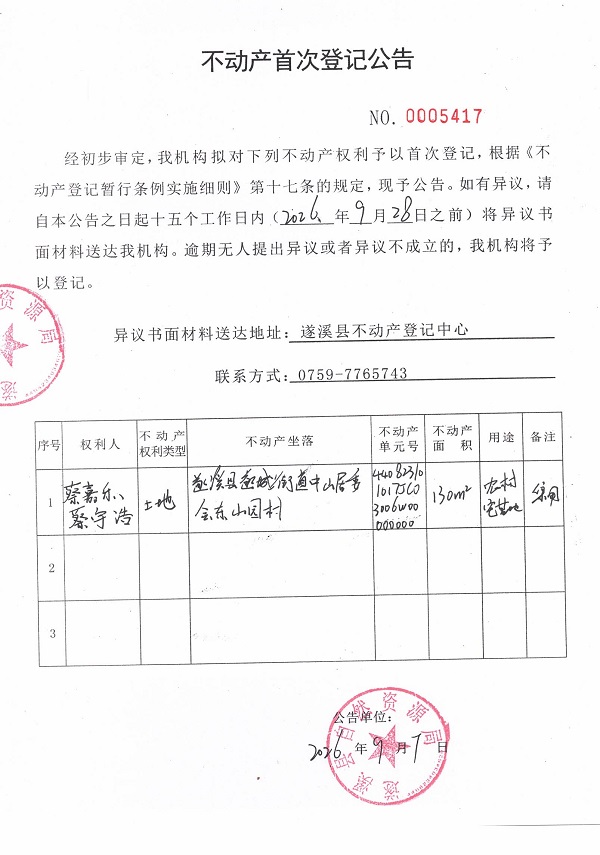 不动产首次登记公告
NO. 0005417
经初步审定，我机构拟对下列不动产权利予以首次登记，根据《不
动产登记暂行条例实施细则》第十七条的规定，现予公告。如有异议，请
自本公告之日起十五个工作日内（2026年9月28日之前）将异议书
面材料送达我机构。逾期无人提出异议或者异议不成立的，我机构将予
以登记。
异议书面材料送达地址：遂溪县不动产登记中心
联系方式：0759-7765743
序号 权利人 不动产权利类型 不动产坐落 不动产单元号 不动产面积 用途 备注
1 蔡嘉乐、蔡宇浩 土地 遂溪县遂城街道中山居委会东山园村 130m² 农村宅基地
2
3
公告单位：
2026年9月7日
遂溪县自然资源局